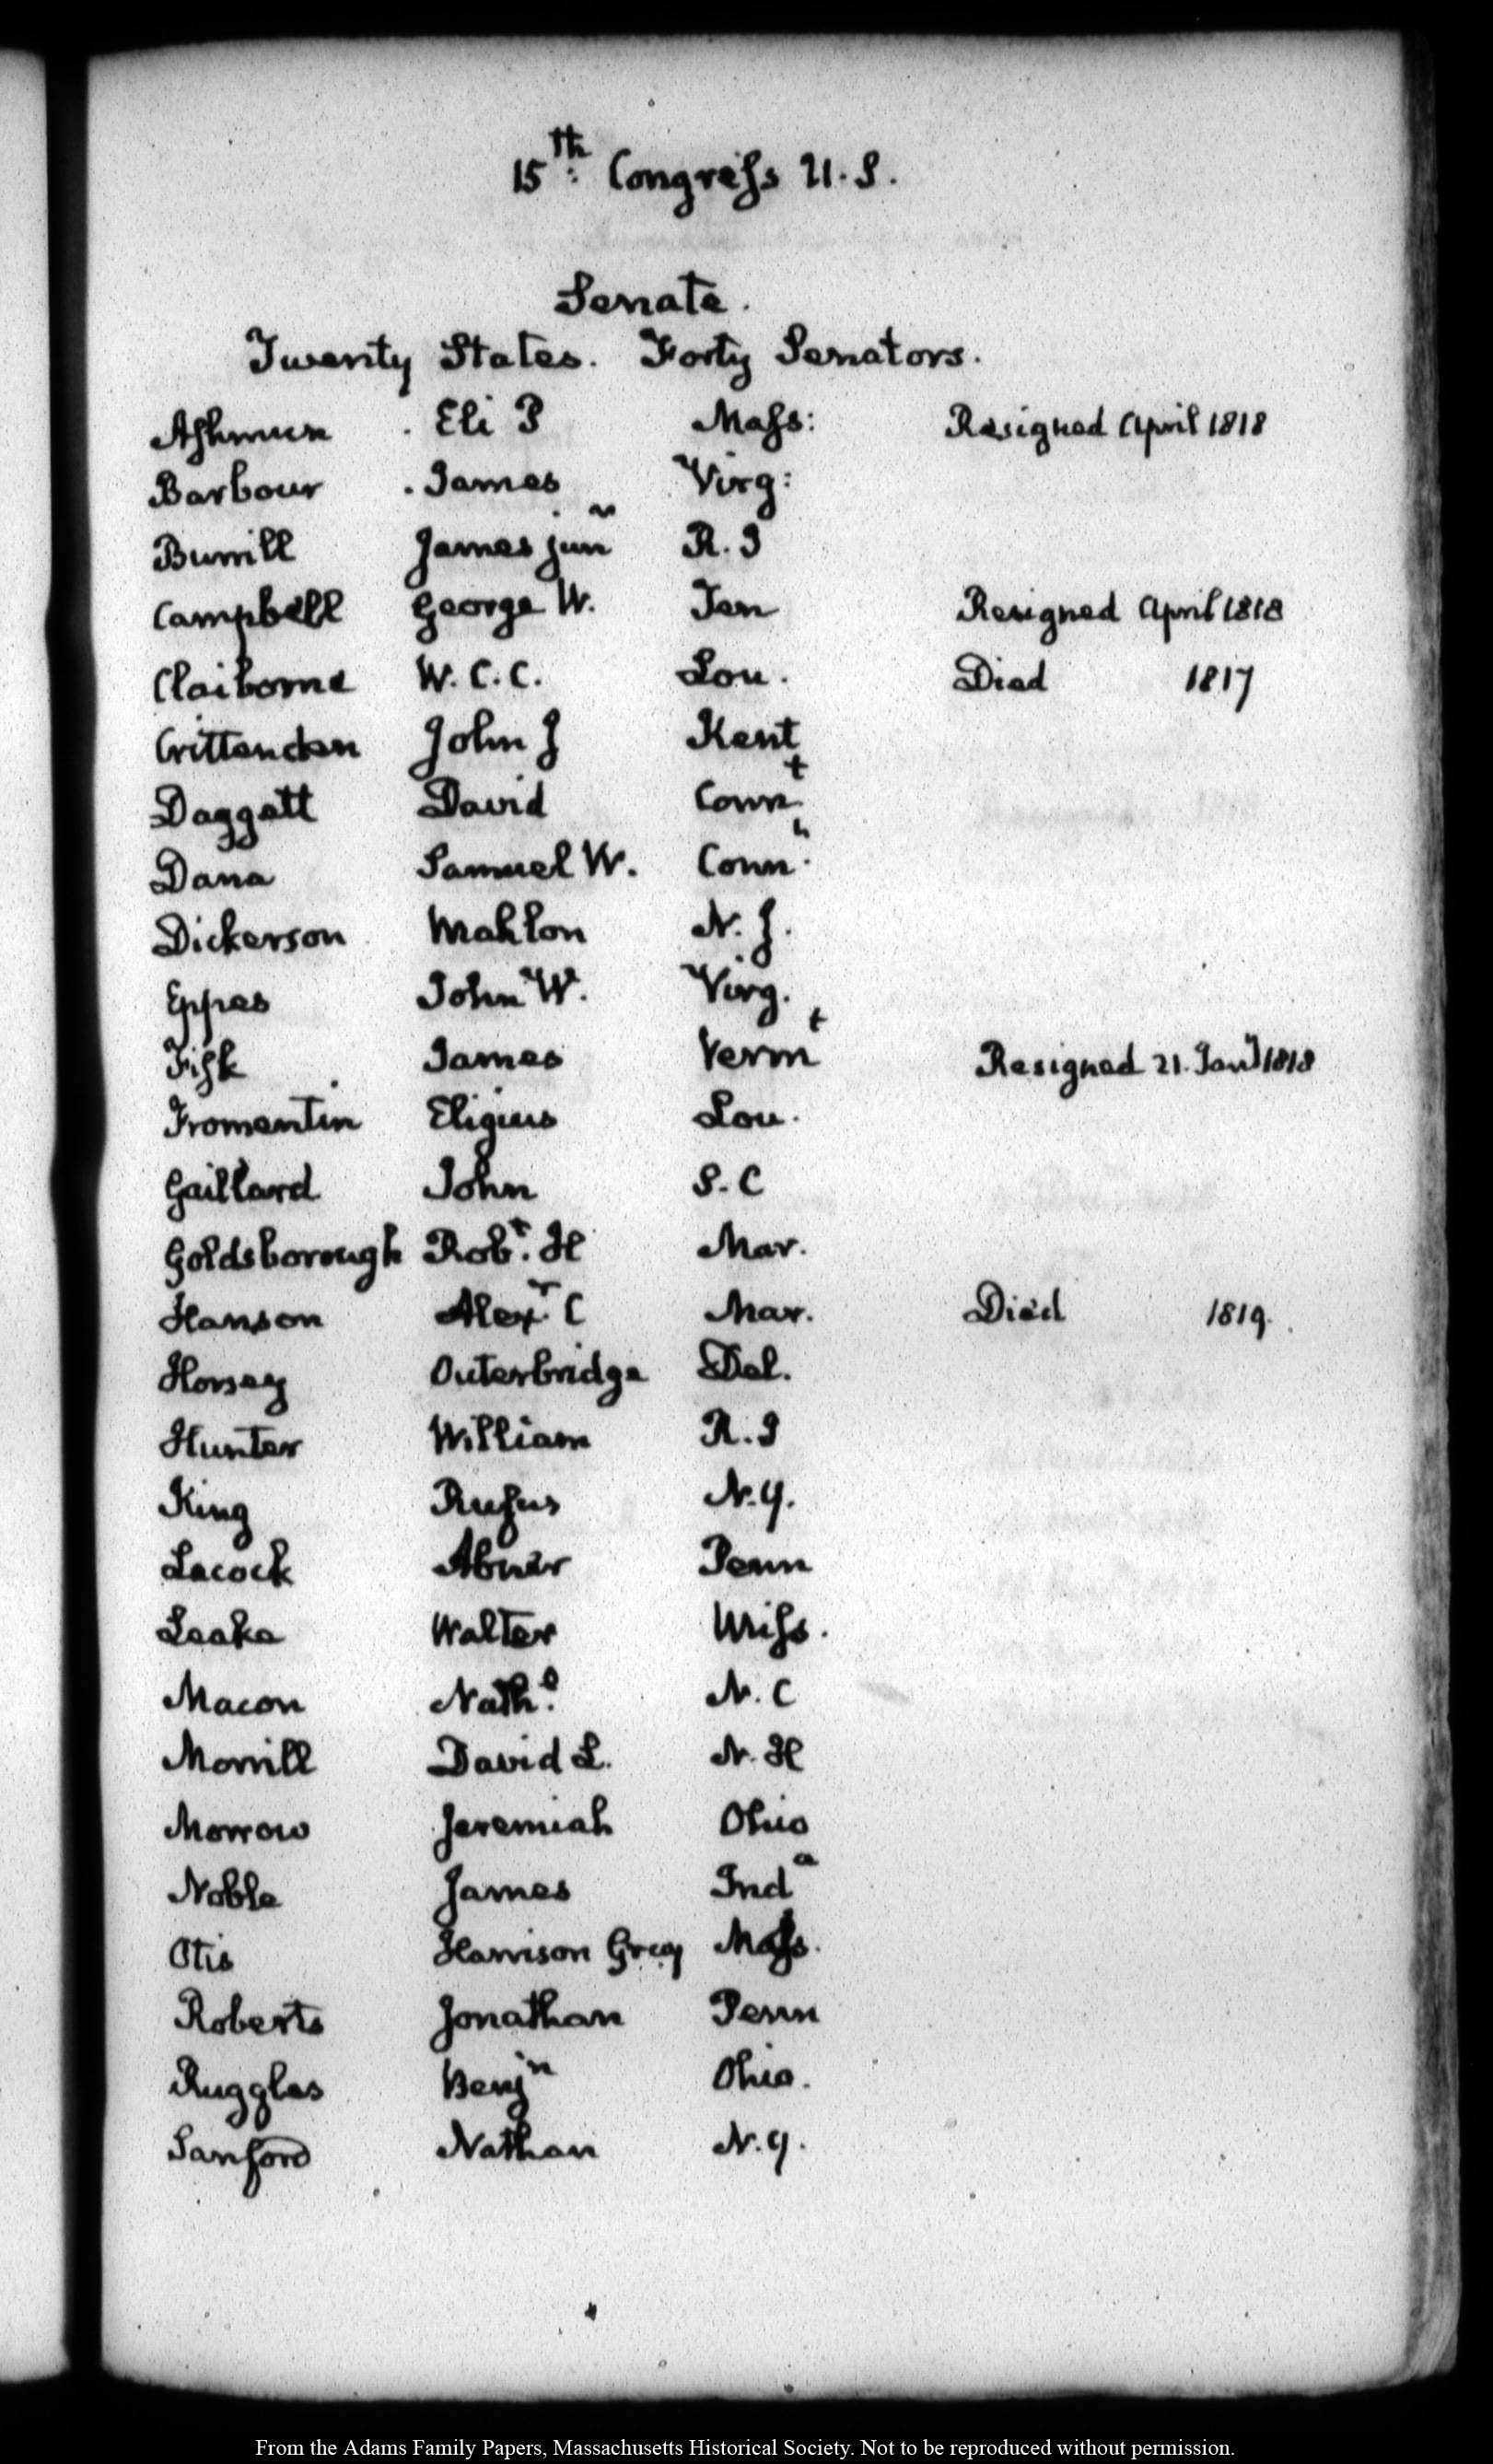 15th: Congress U.S.
Senate.
Twenty States. Forty Senators.
Ashmun . Eli P Mass: Resigned April 1818
Barbour . James Virg:
Burrill James junr R. I
Campbell George W. Ten Resigned April 1818
Claiborne W. C. C. Lou. Died 1817
Crittenden John J Kent
Daggett David Connt
Dana Samuel W. Conn
Dickerson Mahlon N. J.
Eppes John W. Virg.
Fisk James Vermt Resigned 21. Jany 1818
Fromentin Eligius Lou.
Gaillard John S. C
Goldsborough Robt. H Mar.
Hanson Alexr. C Mar. Died 1819.
Horsey Outerbridge Del.
Hunter William R. I
King Rufus N. Y.
Lacock Abner Penn
Leake Walter Miss.
Macon Nathl. N. C
Morrill David L. N. H
Morrow Jeremiah Ohio
Noble James Inda
Otis Harrison Grey Mass.
Roberts Jonathan Penn
Ruggles Benjn Ohio.
Sanford Nathan N. Y.
From the Adams Family Papers, Massachusetts Historical Society. Not to be reproduced without permission.